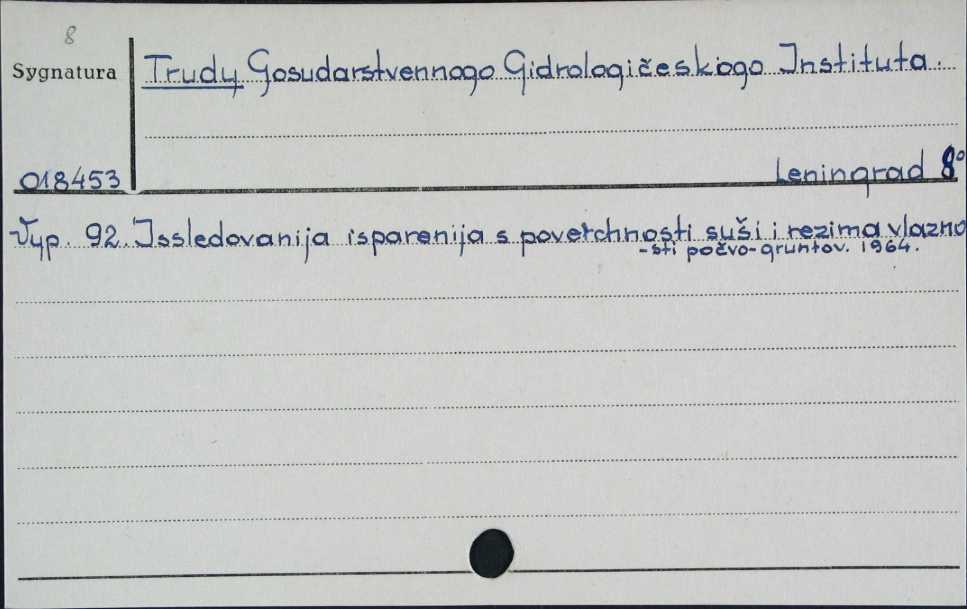 8
Sygnatura
Trudy Gosudarstvennogo Gidrologičeskogo Instituta.
018453
Leningrad 8°
Vyp. 92. Issledovanija isparenija s poverchnosti suši i rezima vlazno
-sti počvo-gruntov. 1964.